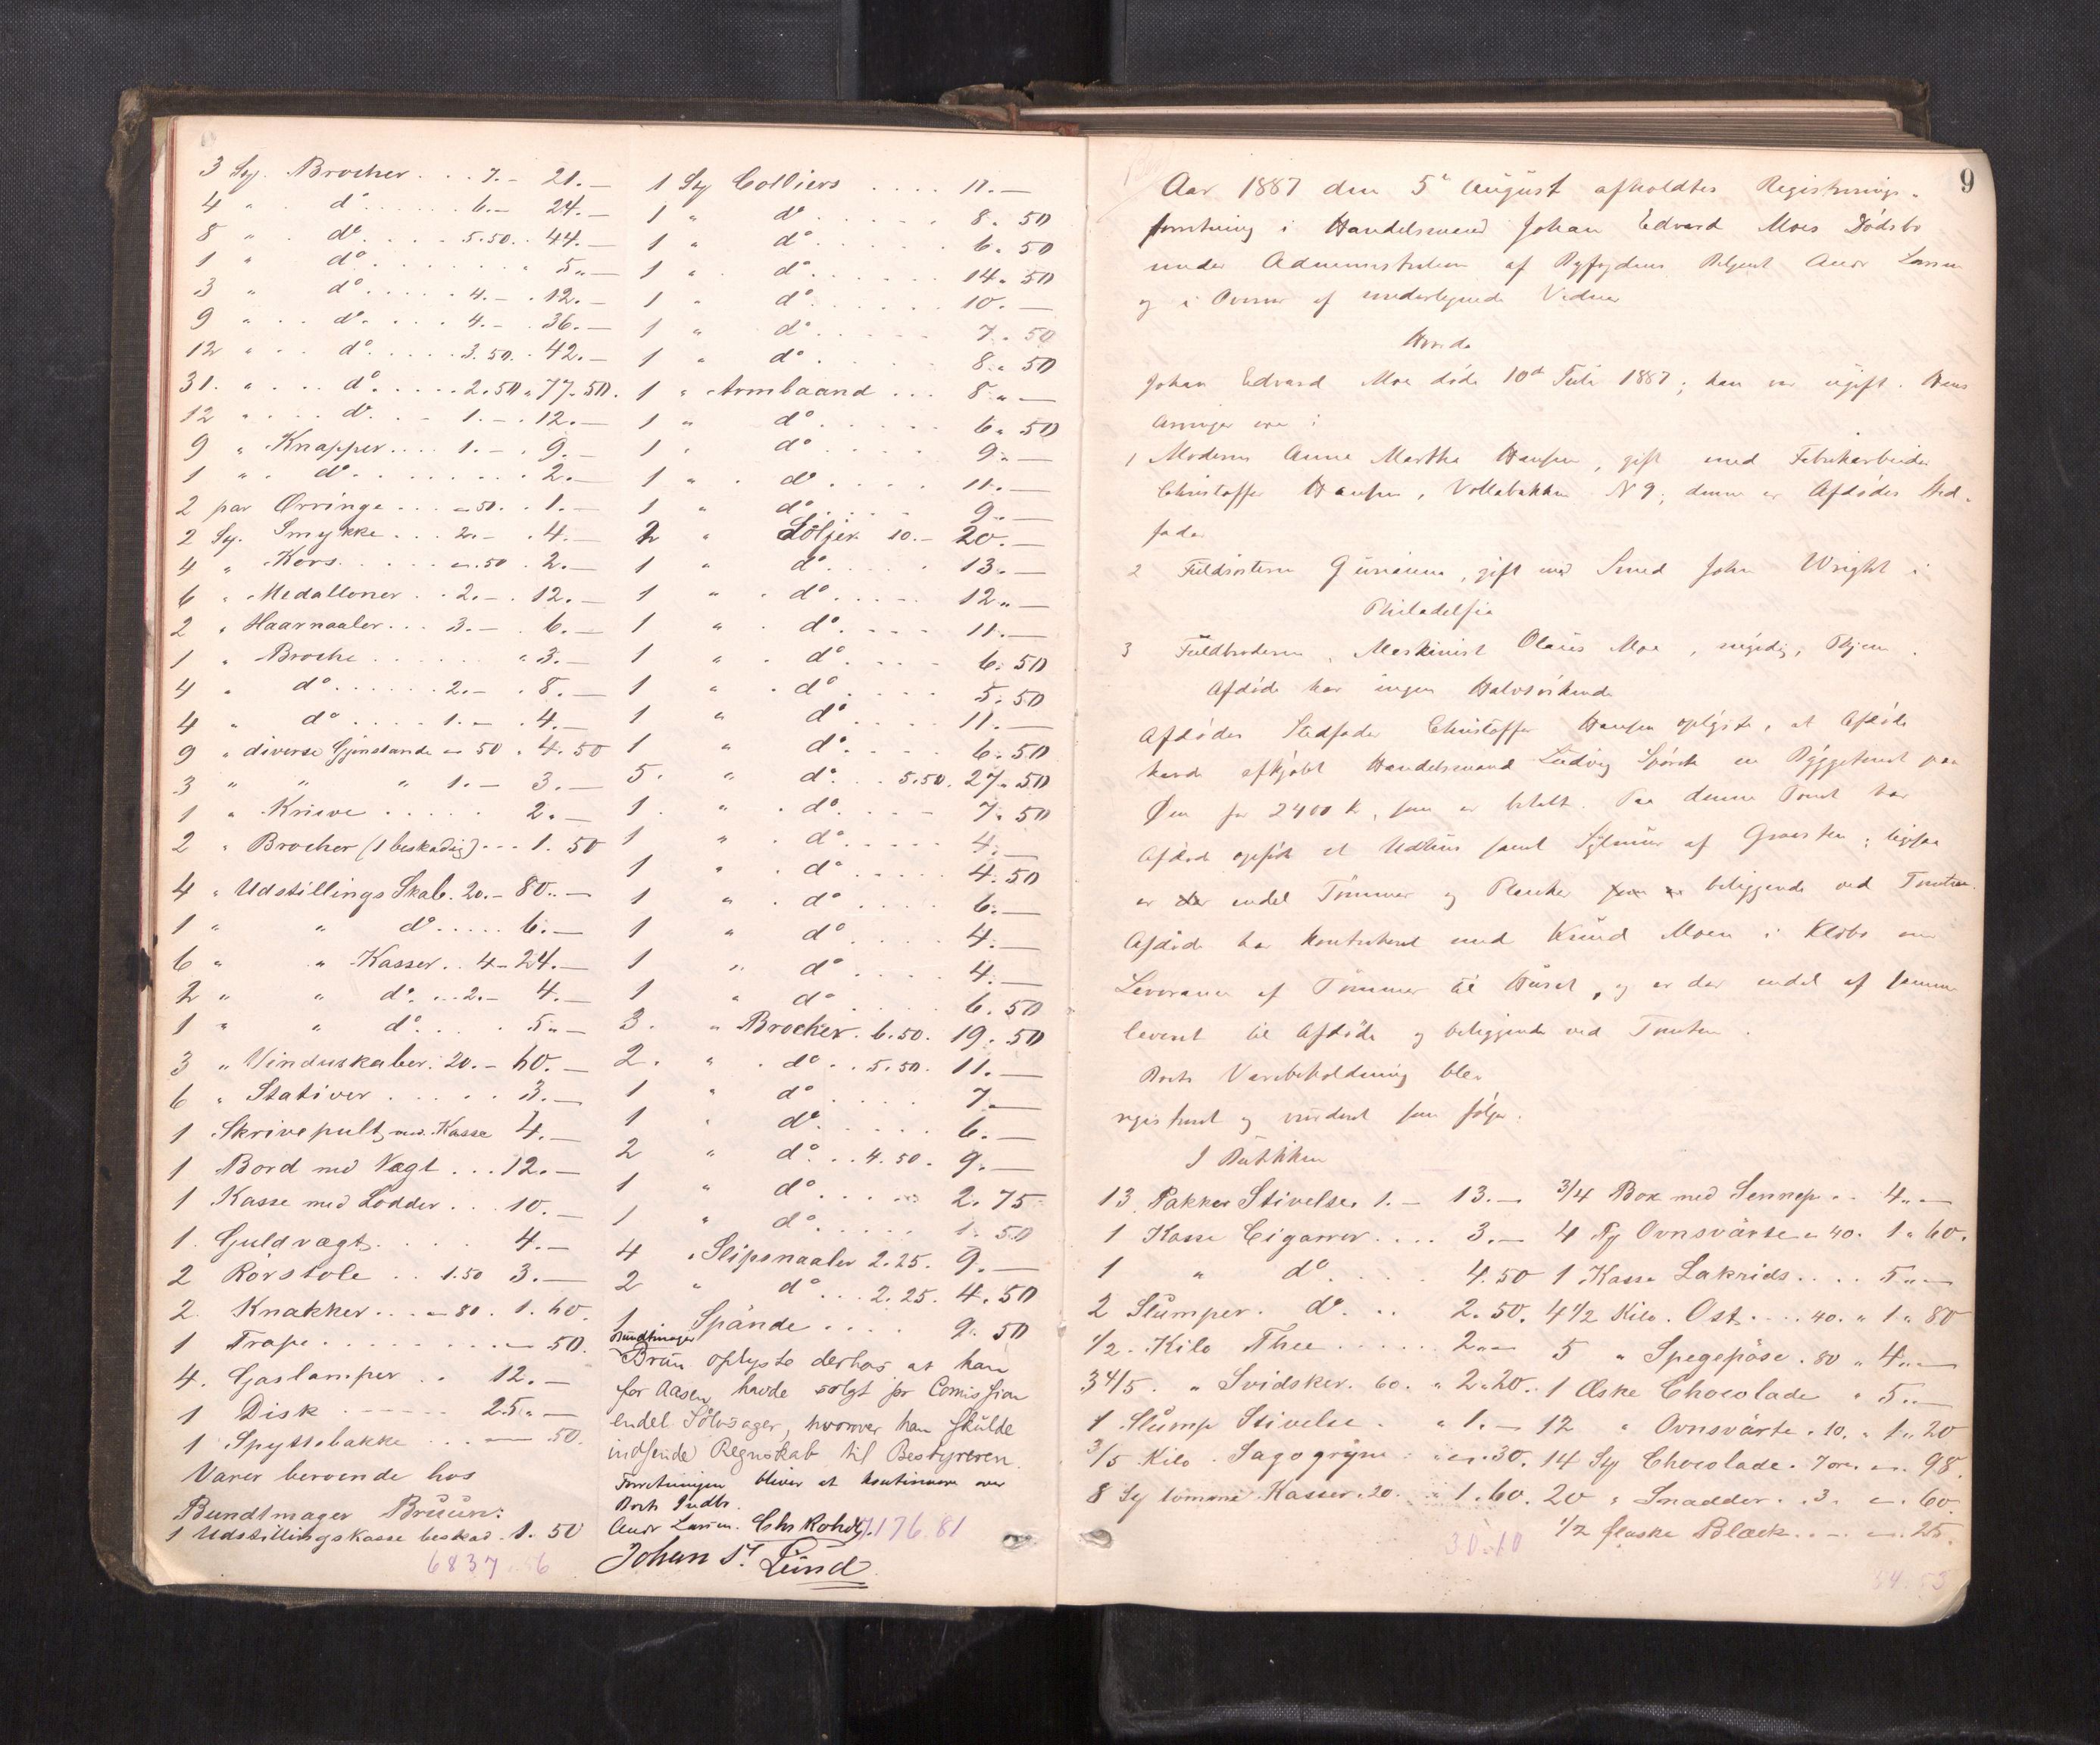 3 Sty. Brocher . . . 7.- 21.-
4 " d° . . . . . . 6.- 24.-
8 " . d° . . . . 5.50. . 44.-
1 " d° . . . . . . . 5"-
3 " d° . . . . . 4.- . 12.-
9 " . . d° . . . . 4.- . 36.-
12 " . . d° . . . . . 3.50. . 42.-
31. " . . . d° . . . . . 2.50 " 77.50.
12 " . . . d° . . - 1.- . 12.-
9 " Knapper . . . . 1.- . 9.-
1 " . d° . . . . . . . . 2.-
2 par Örringe . . . " 50. . 1.-
2 Sty. Smykke . . . 2.- . 4.-
4 " Kors . . . . . " .50 . 2.-
6 " Medalloner . . 2.- . 12.-
2 " Haarnaaler . . . 3.- . 6.-
1 " Broche . . . . . . " 3.-
4 " d° . . . . . . 2.- . 8.-
4 " d° . . . . 1.- . 4.-
9 " diverse Gjenstande " 50 " 4.50
3 " " " 1.- 3.-
1 " Knive . . . . . 2.-
2 " Brocher (1 beskadig) . . . 1.50
4 " Udstillings Skab . 20.- 80.-
1 " " d° . . . . . 6.-
6 " " Kasser . . 4- 24.-
2 " " d° . . . 2.- 4.-
1 " " d° . . . . 5"-
3 " Vinduskaber . 20.- 60.-
6 " Stativer . . . . . 3.-
1 Skrivepult med Kasse 4.-
1 Bord med Vagt . . . 12.-
1 Kasse med Lodder . . . 10.-
1. Guldvagt . . . . . 4.-
2 Rorstole . . 1.50 3.-
2 Knakker . . . " 80 . 1.60.
1 Trape . . . . . . . . " 50.
4. Gaslamper . . 12.-
1 Disk . . . . . . 25"-
1 Spyttebakke . . . " 50.
Varer beroende hos
Bundtmager Bruun:
1 Udstillingskasse beskad. 1.50
6837.56
1 Sty Colliers . . . . 11.-
1 " d° . . . . . . 8.50
1 " d° . . . . . . 6.50
1 " d° . . . . . . 14.50
1 " d° . . . . . . 10.-
1 " d° . . . . . . 7.50
1 " d° . . . . . . 8.50
1 " Armbaand . . . 8"-
1 " d° . . . . . 6.50
1 " d° . . . . 9"-
1 " . d° . . . . 11.-
1 " d° . . . . 9.-
2 " Söljer 10.- 20.-
1 " d° . . . . . 13.-
1 " . d° . . . . 12"-
1 " . d° . . . . 11.-
1 " . d° . . . . 6.50
1 " . d° . . . . 5.50
1 " d° . . . . 11.-
1 " d° . . . . 6.50
5. " d° . . 5.50. 27.50
1. " . d° . . . . 7.50
1 " . d° . . . . . 4.-
1 " . d° . . . . . 4.50
1 " . d° . . . . 6.-
1 " d° . . . . 4.-
1 " d° . . . . 4.-
1 " d° . . . . 6.50
3. " Brocher. 6.50. 19.50
2. " . d° . . 5.50. 11.-
1 " d° . . . . . 7.-
1 " d° . . . . . 6.-
2 " d° . . 4.50. 9.-
1 " d° . . . . . 2.75
1 " d° . . . . . 1.50
4 " Slipsnaaler 2.25. 9.-
2 " d° . . . 2.25. 4.50
1 Spände . . . . 9.50
Bundtmager
Bruun oplyste derhos at han
for Aasen havde solgt pr Comission
endel Sölvsager, hvorover han skulde
indsende Regnskab til Bestyreren.
Forretningen bliver at kontinuere over
Boets Indbo.
Andr Larsen. Chr Rohde. 7176.81
Johan St. Lund
9
Aar 1887 den 5' August afholdtes Registrerings-
forretning i Handelsmand Johan Edvard Moes Dödsbo
under Administration af Byfogdens Betjent Andr Larsen
og i Overvær af undertegnede Vidner
Hvorda
Johan Edvard Moe döde 10de Juli 1887; han var ugift. Hans
Arvinger ere:
1 Moderen Anne Martha Hansen, gift med Fabrikarbeider
Christoffer Hansen, Vollabakken N 9; denne er Afdödes Sted-
fader
2 Fuldsösteren Gurianna, gift med Smed John Wright i
Philadelfia
3 Fuldbroderen, Maskinist Olaus Moe, myndig, Thjem.
Afdöde har ingen Halvsöskende
Afdödes Stedfader Christoffer Hansen oplyste, at Afdöde
havde afkjöbt Handelsmand Ludvig Spörck en Byggetomt paa
Öen for 2400 k, som er betalt. Paa denne Tomt har
Afdöde opfört et Udhus samt Sylmur af Graasten; ligesaa
er der endel Tömmer og Planker beliggende ved Tomten.
Afdöde har kontrahert med Knud Moen i Klæbo om
Leverance af Tömmer til Huset, og er der endel af samme
levert til Afdöde og beliggende ved Tomten.
Boets Varebeholdning blev
registreret og vurderet som fölger:
I Butikken
13 Pakker Stivelse. 1.- 13.-
1 Kasse Cigarrer . . . . 3.-
1 " d° . . . . 4.50
2 Slumper. d° . . 2.50.
1/2. Kilo Thee . . . . . 2"-
3 4/5. " Svidsker. 60. " 2.20.
1 Slump Stivelse . " 1.-
3/5 Kilo. Sagogryn . " 30.
8 Sty tomme Kasser. 20. " 1.60.
30.10
3/4 Box med Sennep . . 4"-
4 Ps Ovnsvärte " 40. 1"60.
1 Kasse Lakrids . . . . 5"-
4 1/2 Kilo. Ost . . . . 40. " 1"80
5 " Spegepöse. 80 " 4"-
1 Æske Chocolade " 5"-
12 " Ovnsvärte. 10. " 1"20
14 Sty Chocolade. 7 öre. " 98.
20 " Snadder. . 3. " 60.
1/2 flaske Blæk . . . . " 25.
54.53